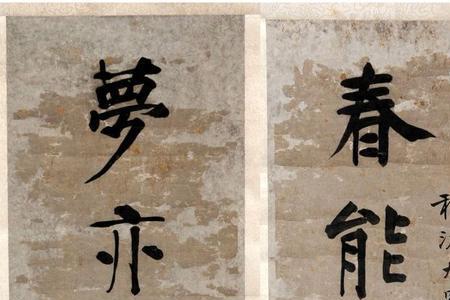 春能
夢亦